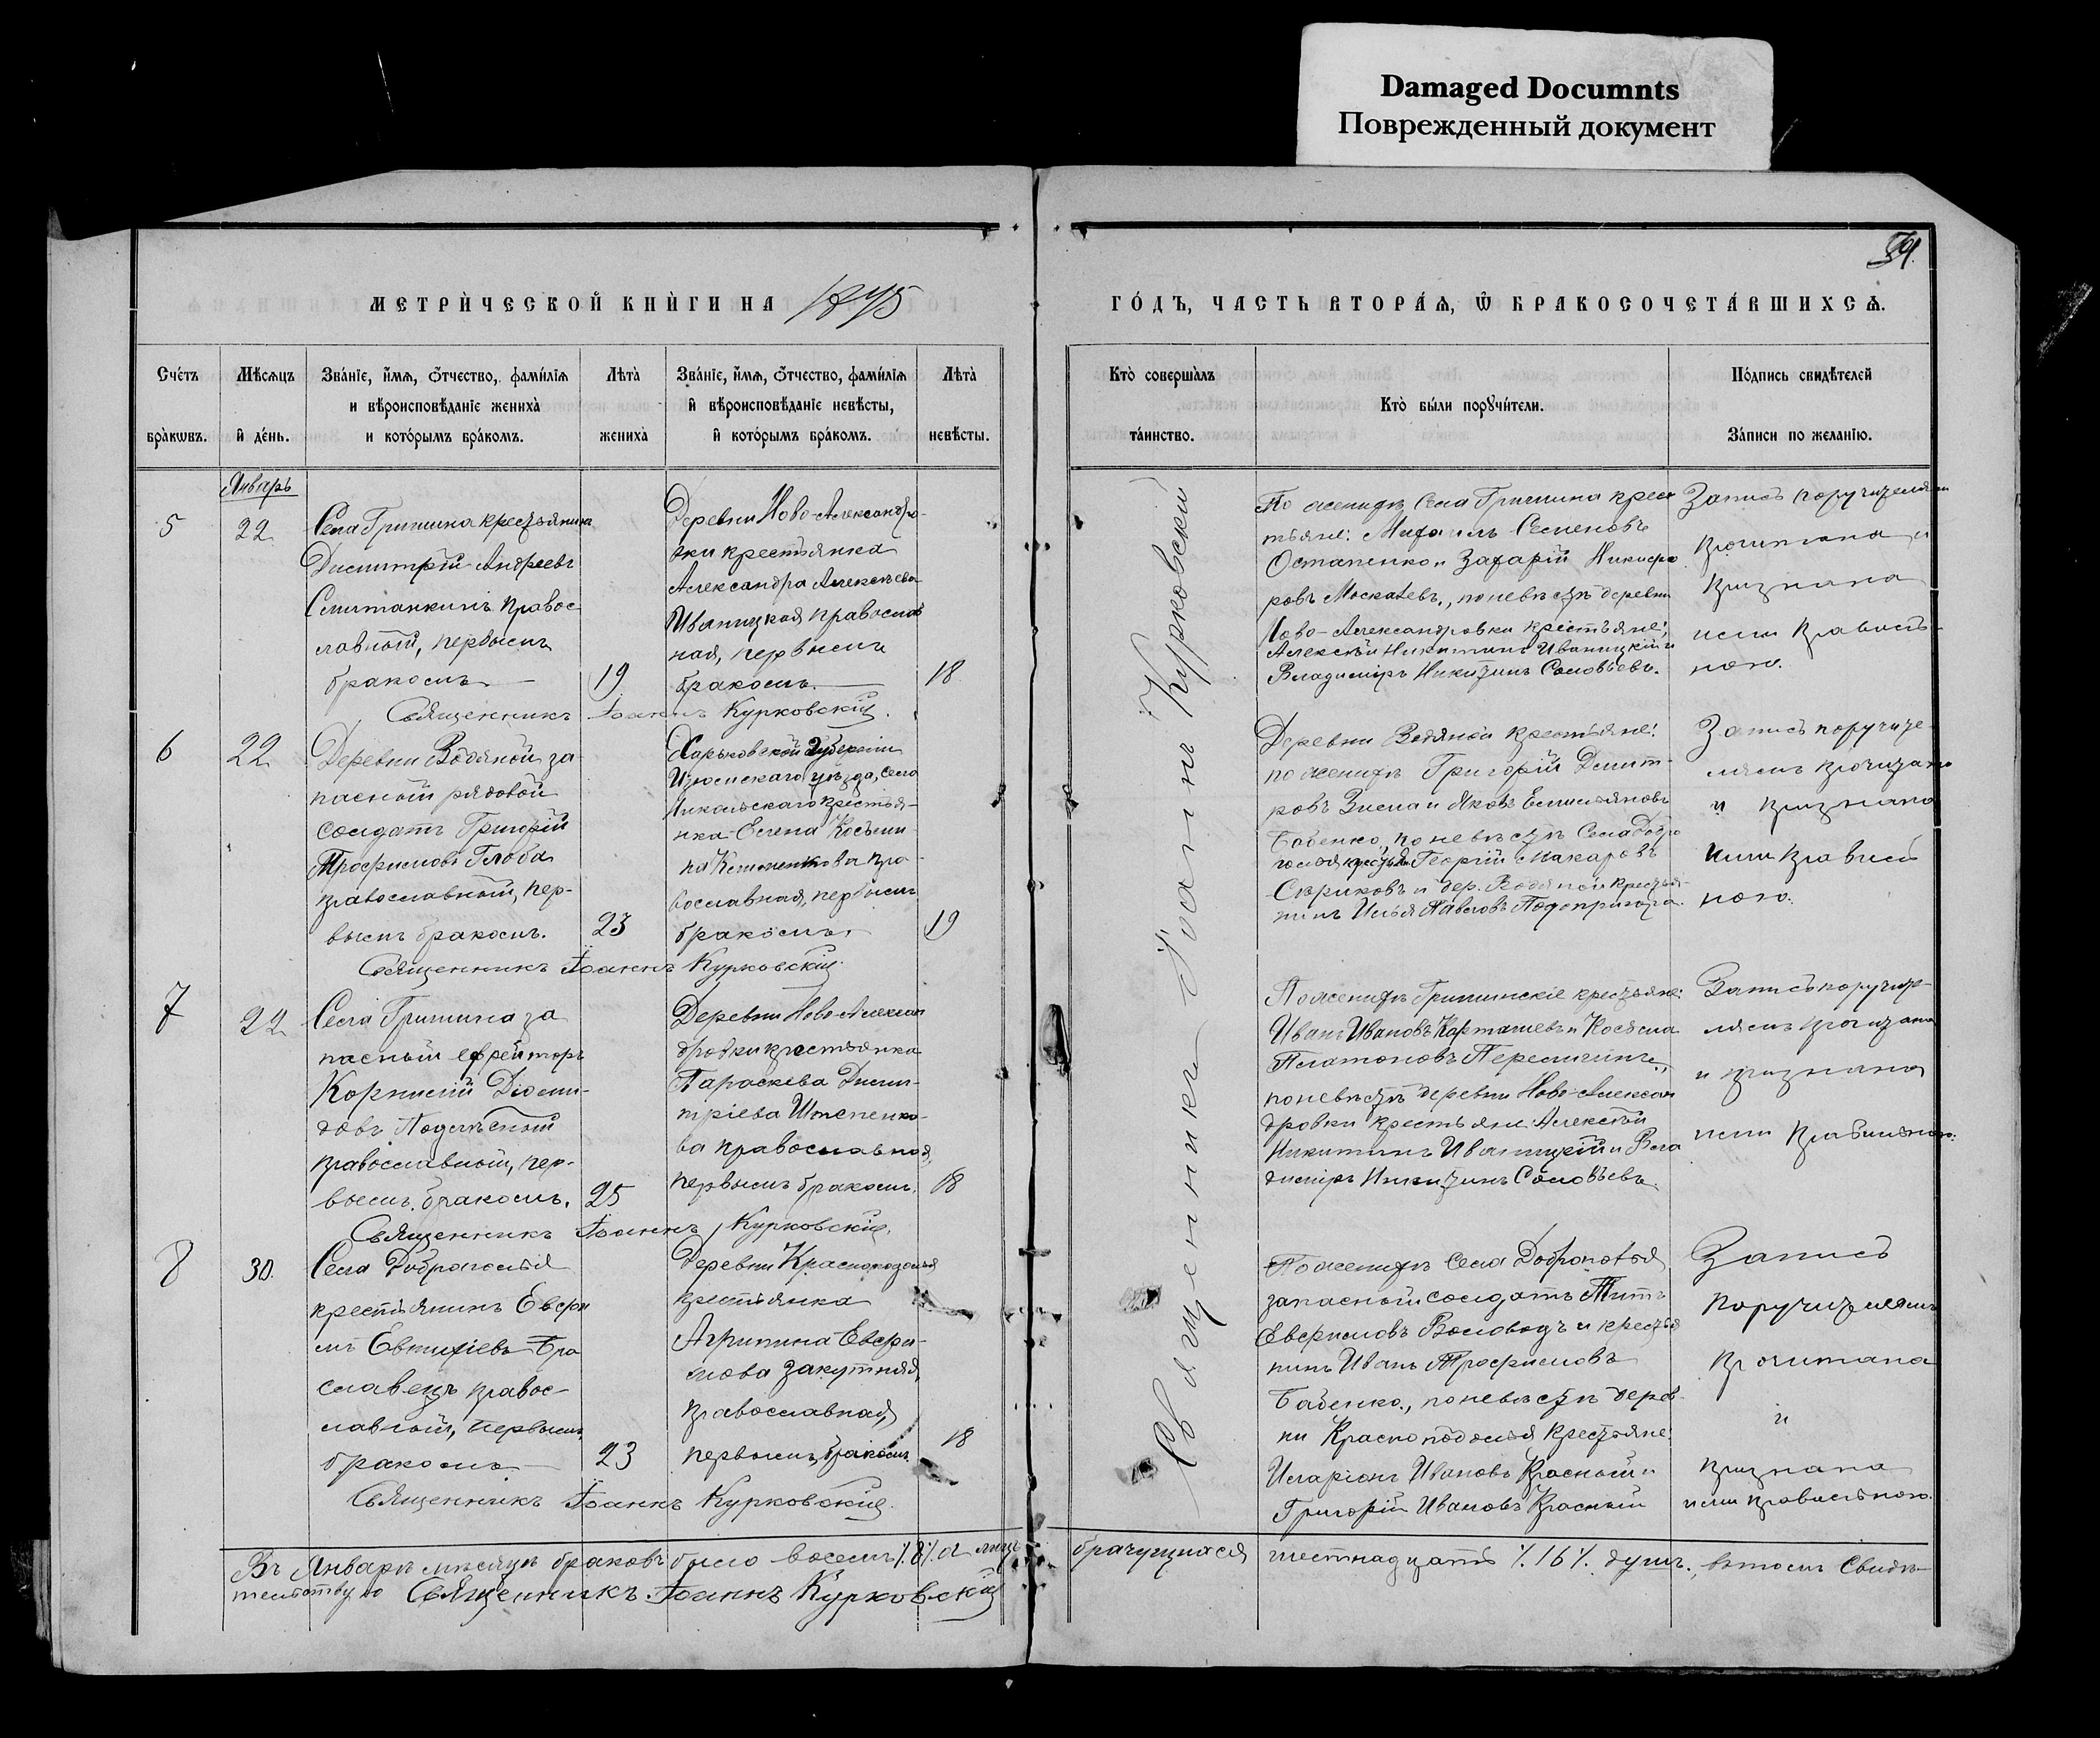 Damaged Documnts
Поврежденный документ
МЕТРИ́ЧЕСКОЙ КНИ́ГИ НА
ГО́ДЪ, ЧАСТЬ ВТОРА́Я, Ѡ БРАКОСОЧЕТА́ВШИХСЯ.
Сче́тъ бра́кѡвъ.
Мѣ́сяцъ и де́нь.
Зва́нїе, и́мя, о́тчество, фами́лїя
и вѣроисповѣ́данїе жениха̀
и кото́рымъ бра́комъ.
Лѣта̀ жениха̀
Зва́нїе, и́мя, о́тчество, фами́лїя
и вѣроисповѣ́данїе невѣ́сты,
и кото́рымъ бра́комъ.
Лѣта̀ невѣ́сты.
Кто̀ соверша́лъ
та́инство.
Кто̀ бы́ли порꙋчи́тели.
По́дпись свидѣ́телей
За́писи по жела́нїю.
Январь
5
22
Села Гришина крестьянинъ
Димитрій Андреевъ
православный, первымъ
бракомъ
19
Деревни Ново-Александро-
вки крестьянка
Александра Алексѣева
Иваницкая православ
ная, первымъ
бракомъ.
18
По женихѣ Села Гришина крес
тьяне: Михаилъ Семеновъ
Остапенко и Захарій Никифо
ровъ, по невѣстѣ деревни
Ново-Александровки крестьяне:
Алексѣй Никитинъ Иваницкій и
Владиміръ Никитинъ Соловьевъ.
Запись поручителями
прочитана и
признана
ими правиль-
ною.
Священникъ Іоаннъ Курковскій.
6
22
Деревни Водяной за-
пасный рядовой
солдатъ Григорій
Трофимовъ Глоба
православный, пер-
вымъ бракомъ.
23
Харьковской Губерніи
Изюмскаго уѣзда, села
Никольскаго крестья-
нка Елена Косьми-
на пра-
вославная, первымъ
бракомъ.
19
Деревни Водяной крестьяне:
по женихѣ Григорій Дмит-
ровъ Зима и Яковъ Емильяновъ
Бабенко, по невѣстѣ Села Добро
Георгій Макаровъ
и дер. Водяной крестья-
нинъ Илья Павловъ Подопригора.
Запись поручите-
лямъ прочитана
и признана
ими правиль
ною.
Священникъ Іоаннъ Курковскій.
7
22
Села Гришина за
пасный ефрейторъ
Корнилій Діоми-
довъ Подлѣсный
православный, пер-
вымъ бракомъ.
25
Деревни Ново-Алексан
дровки крестьянка
Параскева Дими-
тріева
ва православная,
первымъ бракомъ.
18
По женихѣ Гришинскіе крестьяне:
Иванъ Ивановъ Карташевъ и Косьма
Платоновъ
по невѣстѣ деревни Ново-Алексан
дровки крестьяне: Алексѣй
Никитинъ Иваницкій и Вла
диміръ Никитинъ Соловьевъ.
Запись поручите-
лямъ прочитана
и признана
ими правильною.
Священникъ Іоаннъ Курковскій.
8
30.
Села Доброполья
крестьянинъ Евфи
мъ Евтихіевъ Бра
славецъ правос-
лавный, первымъ
бракомъ
23
Деревни Красноподолья
крестьянка
Агрипина Евфи-
мова Закутняя,
православная,
первымъ бракомъ
18
По женихѣ села Доброполья
запасный солдатъ Титъ
Евфимовъ Воловодъ и крестья
нинъ Иванъ Трофимовъ
Бабенко, по невѣстѣ дерев-
ни Красноподолья крестьяне:
Иларіонъ Ивановъ Красный и
Григорій Ивановъ Красный
Запись
поручителямъ
прочитана
и
признана
ими правильною.
Священникъ Іоаннъ Курковскій.
Священникъ Іоаннъ Курковскій
Въ Январѣ мѣсяцѣ браковъ было восемь ./.8./. а лицъ брачущихся шестнадцать ./.16./. душъ. въ томъ свидѣ-
тельствую Священникъ Іоаннъ Курковскій